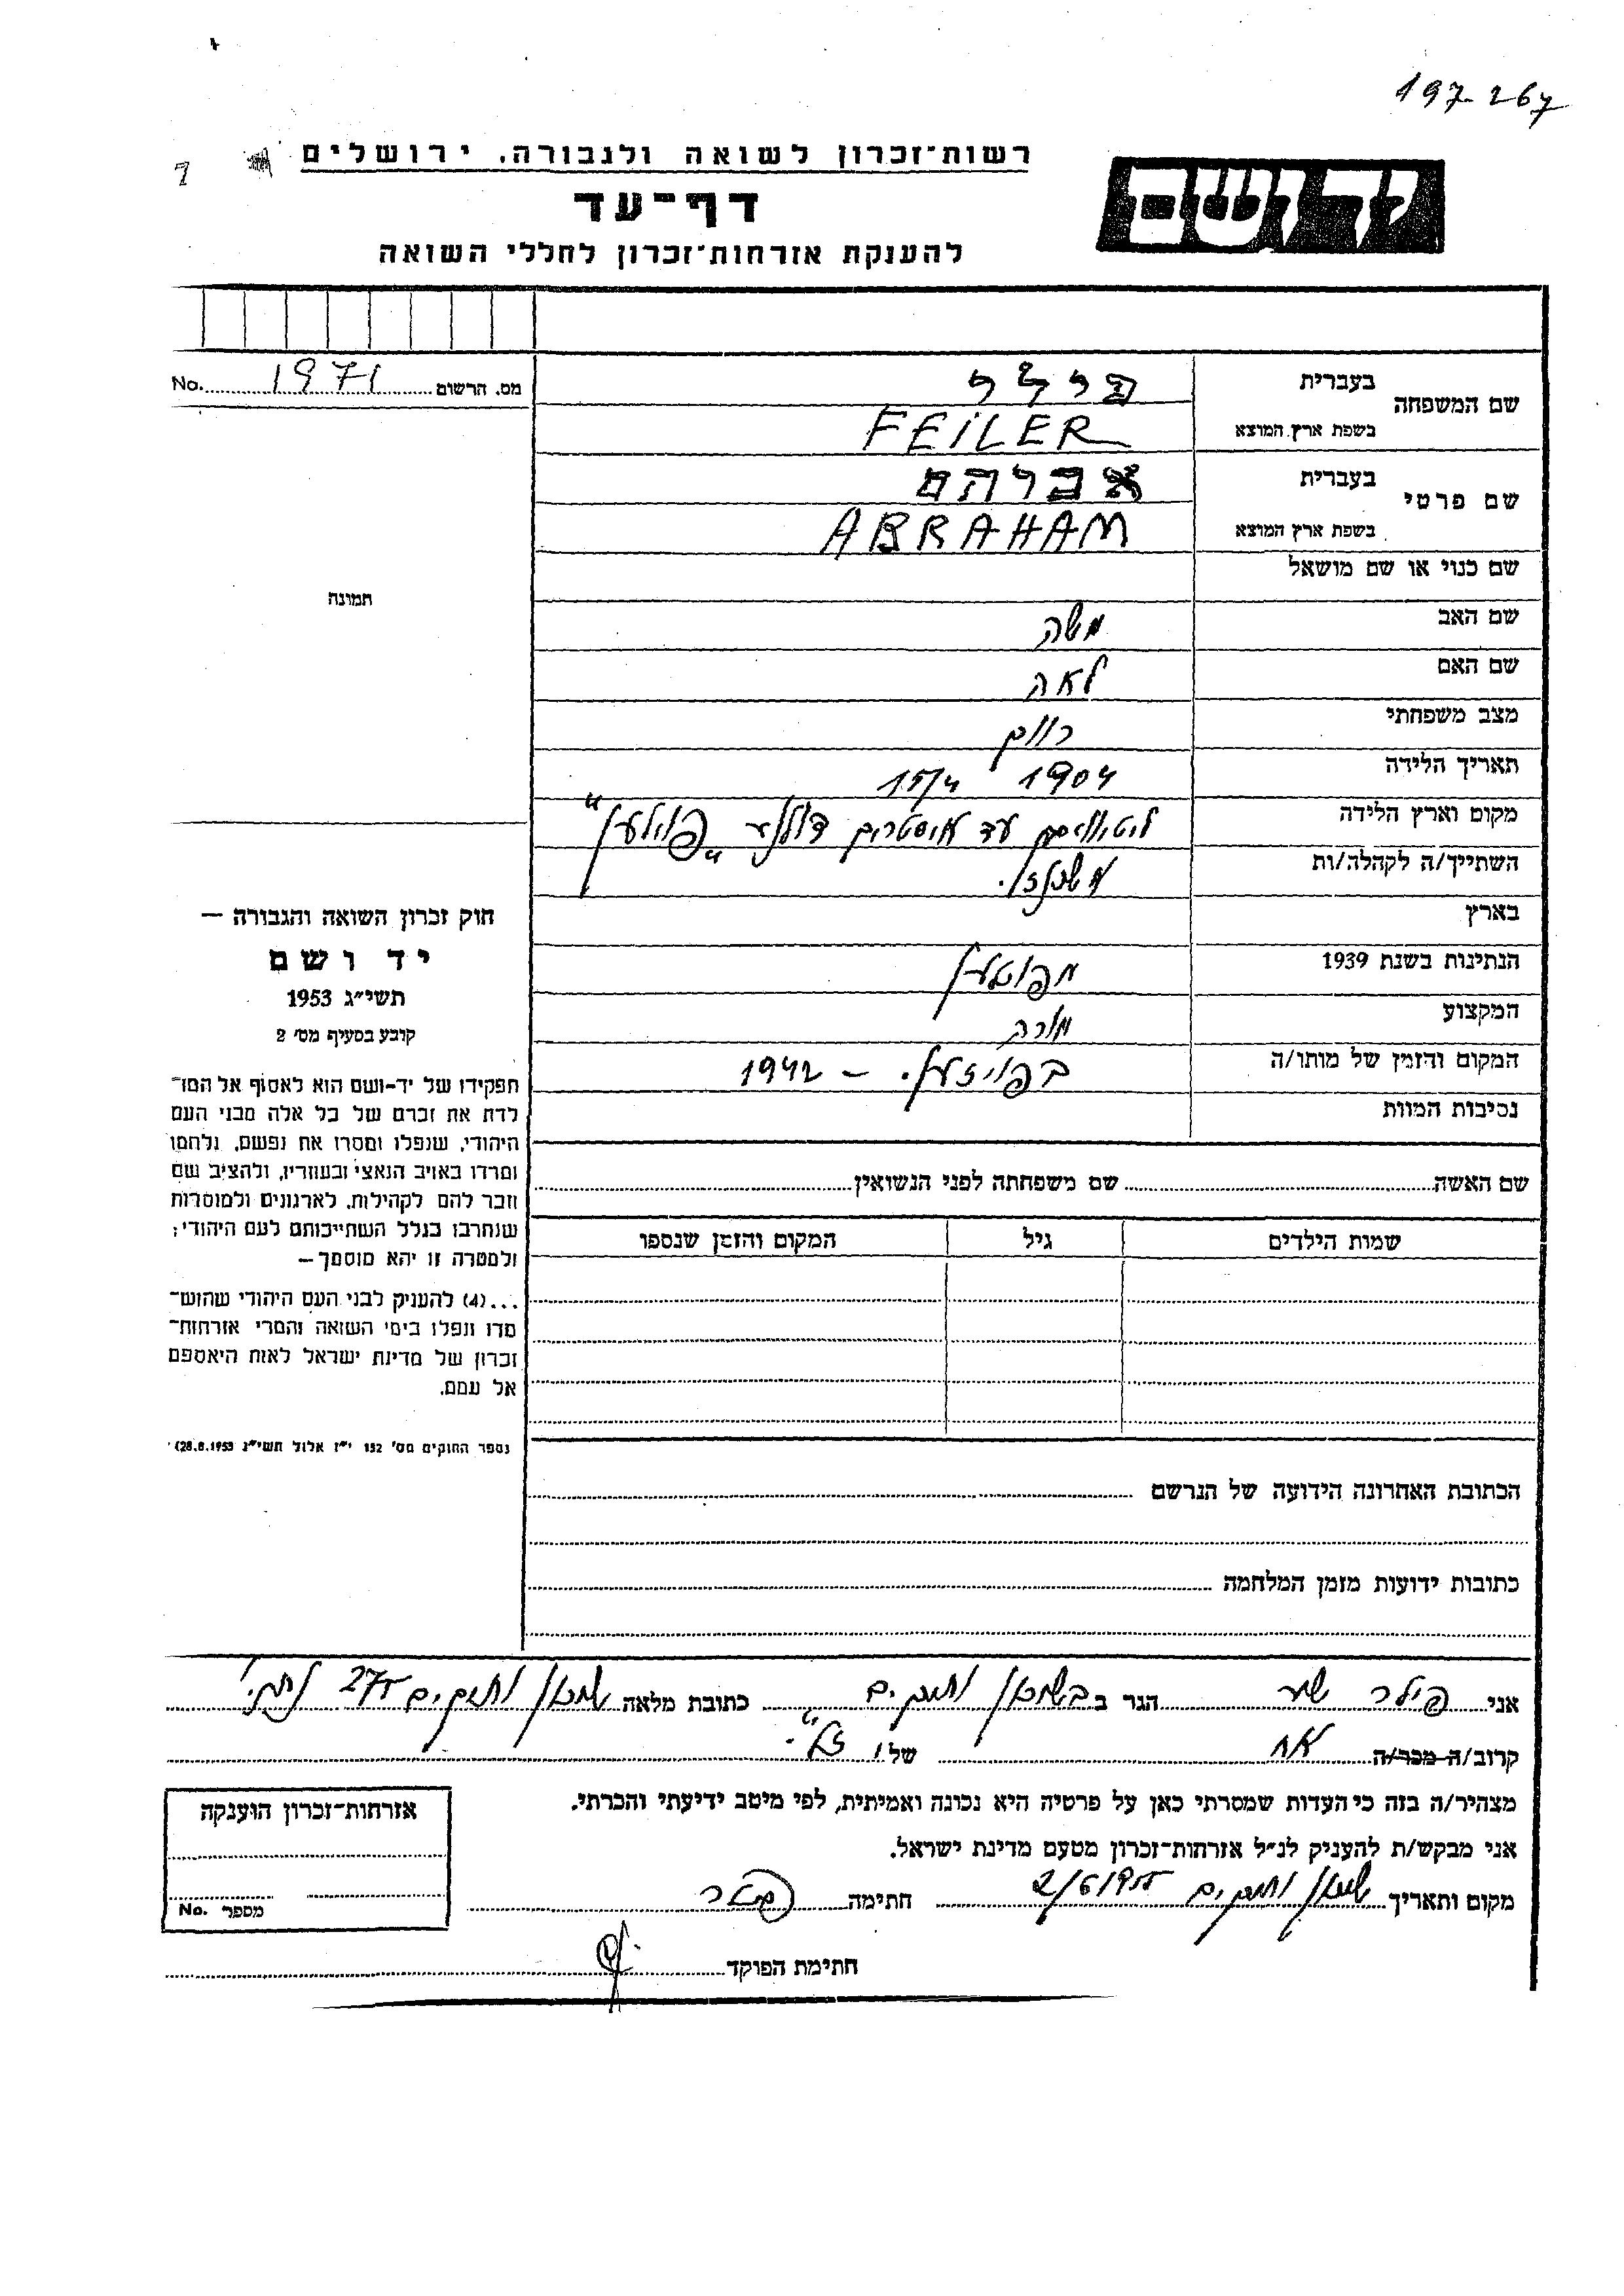 197-267
רשות־זכרון לשואה ולגבורה, ירושלים
יד ושם
דף־עד
להענקת אזרחות־זכרון לחללי השואה
מס. הרשום 1971 No.
שם המשפחה
בעברית פילר
בשפת ארץ המוצא FEILER
שם פרטי
בעברית אברהם
בשפת ארץ המוצא ABRAHAM
שם כנוי או שם מושאל
שם האב משה
שם האם לאה
מצב משפחתי
תאריך הלידה 1904 15/4
מקום וארץ הלידה
השתייך/ה לקהלה/ות
בארץ
הנתינות בשנת 1939
המקצוע מורה
המקום והזמן של מותו/ה – 1942
נסיבות המוות
שם האשה שם משפחתה לפני הנשואין
שמות הילדים גיל המקום והזמן שנספו
הכתובת האחרונה הידועה של הנרשם
כתובות ידועות מזמן המלחמה
תמונה
חוק זכרון השואה והגבורה —
יד ושם
תשי״ג 1953
קובע בסעיף מס׳ 2
תפקידו של יד-ושם הוא לאסוף אל המו־
לדת את זכרם של כל אלה מבני העם
היהודי, שנפלו ומסרו את נפשם, נלחמו
ומרדו באויב הנאצי ובעוזריו, ולהציב שם
וזכר להם לקהילות, לארגונים ולמוסדות
שנחרבו בגלל השתייכותם לעם היהודי;
ולמטרה זו יהא מוסמך —
...(4) להעניק לבני העם היהודי שהוש־
מדו ונפלו בימי השואה והמרי אזרחות־
זכרון של מדינת ישראל לאות היאספם
אל עמם.
(ספר החוקים מס׳ 132 י״ז אלול תשי״ג 28.8.1953)
אני פילר הגר ב כתובת מלאה
קרוב/ה מכר/ה אח של ו ז״ל.
מצהיר/ה בזה כי העדות שמסרתי כאן על פרטיה היא נכונה ואמיתית, לפי מיטב ידיעתי והכרתי.
אני מבקש/ת להעניק לנ״ל אזרחות־זכרון מטעם מדינת ישראל.
מקום ותאריך חתימה פילר
חתימת הפוקד
אזרחות־זכרון הוענקה
מספר No.